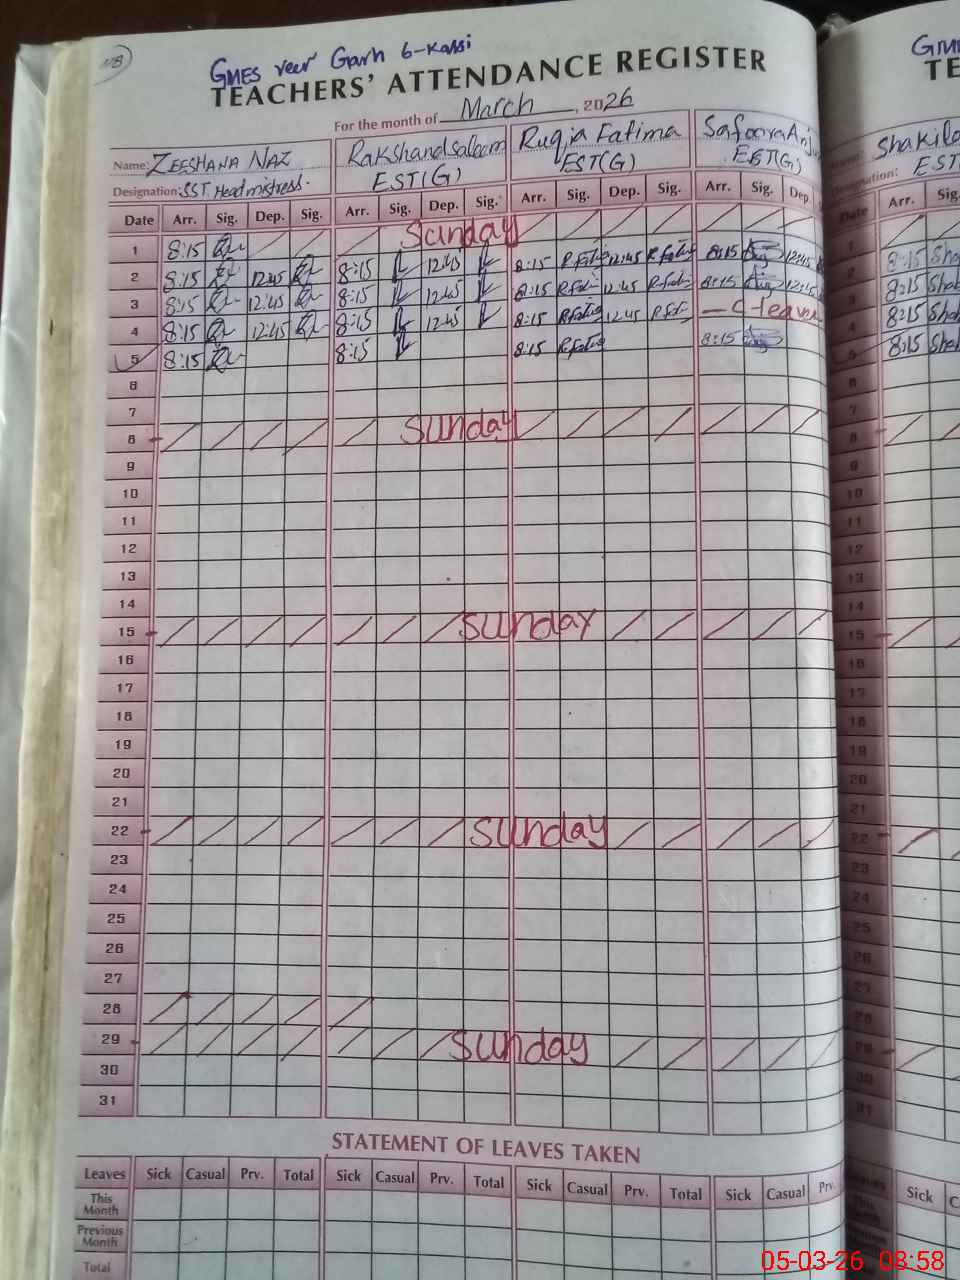 118
GMES veer Garh 6-Kassi
TEACHERS' ATTENDANCE REGISTER
For the month of March, 2026
Name: ZEESHANA NAZ Rakshanda Saleem Ruqia Fatima Safoora
Designation: SST Headmistress. EST(G) EST(G) EST(G)
Date Arr. Sig. Dep. Sig. Arr. Sig. Dep. Sig. Arr. Sig. Dep. Sig. Arr. Sig. Dep.
1 8:15 Sunday
2 8:15 12:45 8:15 12:45 8:15 R.Fatima 12:45 R.Fatima 8:15 12:45
3 8:15 12:45 8:15 12:45 8:15 R.Fatima 12:45 R.Fatima 8:15 12:45
4 8:15 12:45 8:15 12:45 8:15 R.Fatima 12:45 R.Fatima C-leave
5 8:15 8:15 8:15 R.Fatima 8:15
6
7
8 Sunday
9
10
11
12
13
14
15 Sunday
16
17
18
19
20
21
22 Sunday
23
24
25
26
27
28
29 Sunday
30
31
STATEMENT OF LEAVES TAKEN
Leaves Sick Casual Prv. Total Sick Casual Prv. Total Sick Casual Prv. Total Sick Casual Prv.
This Month
Previous Month
Total
GM
TE
Shakila
Designation: EST
Date Arr. Sig.
8:15 Sha
8:15 Shak
8:15 Shak
8:15 Shak
Leaves Sick C
05-03-26 08:58